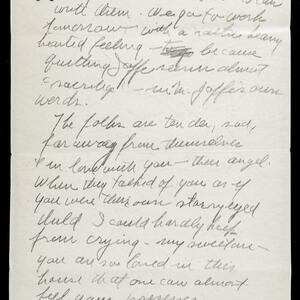 with them. We go to work
tomorrow with a rather heavy
hearted feeling — because
quitting Joffe seems almost
"sacrilege" — in Mr. Joffe's own
words.
The folks are tender, sad,
far away from themselves
in love with you — their angel.
When they talked of you as if
you were their own starry-eyed
child I could hardly keep
from crying — my sweetone —
you are so loved in this
house that one can almost
feel your presence